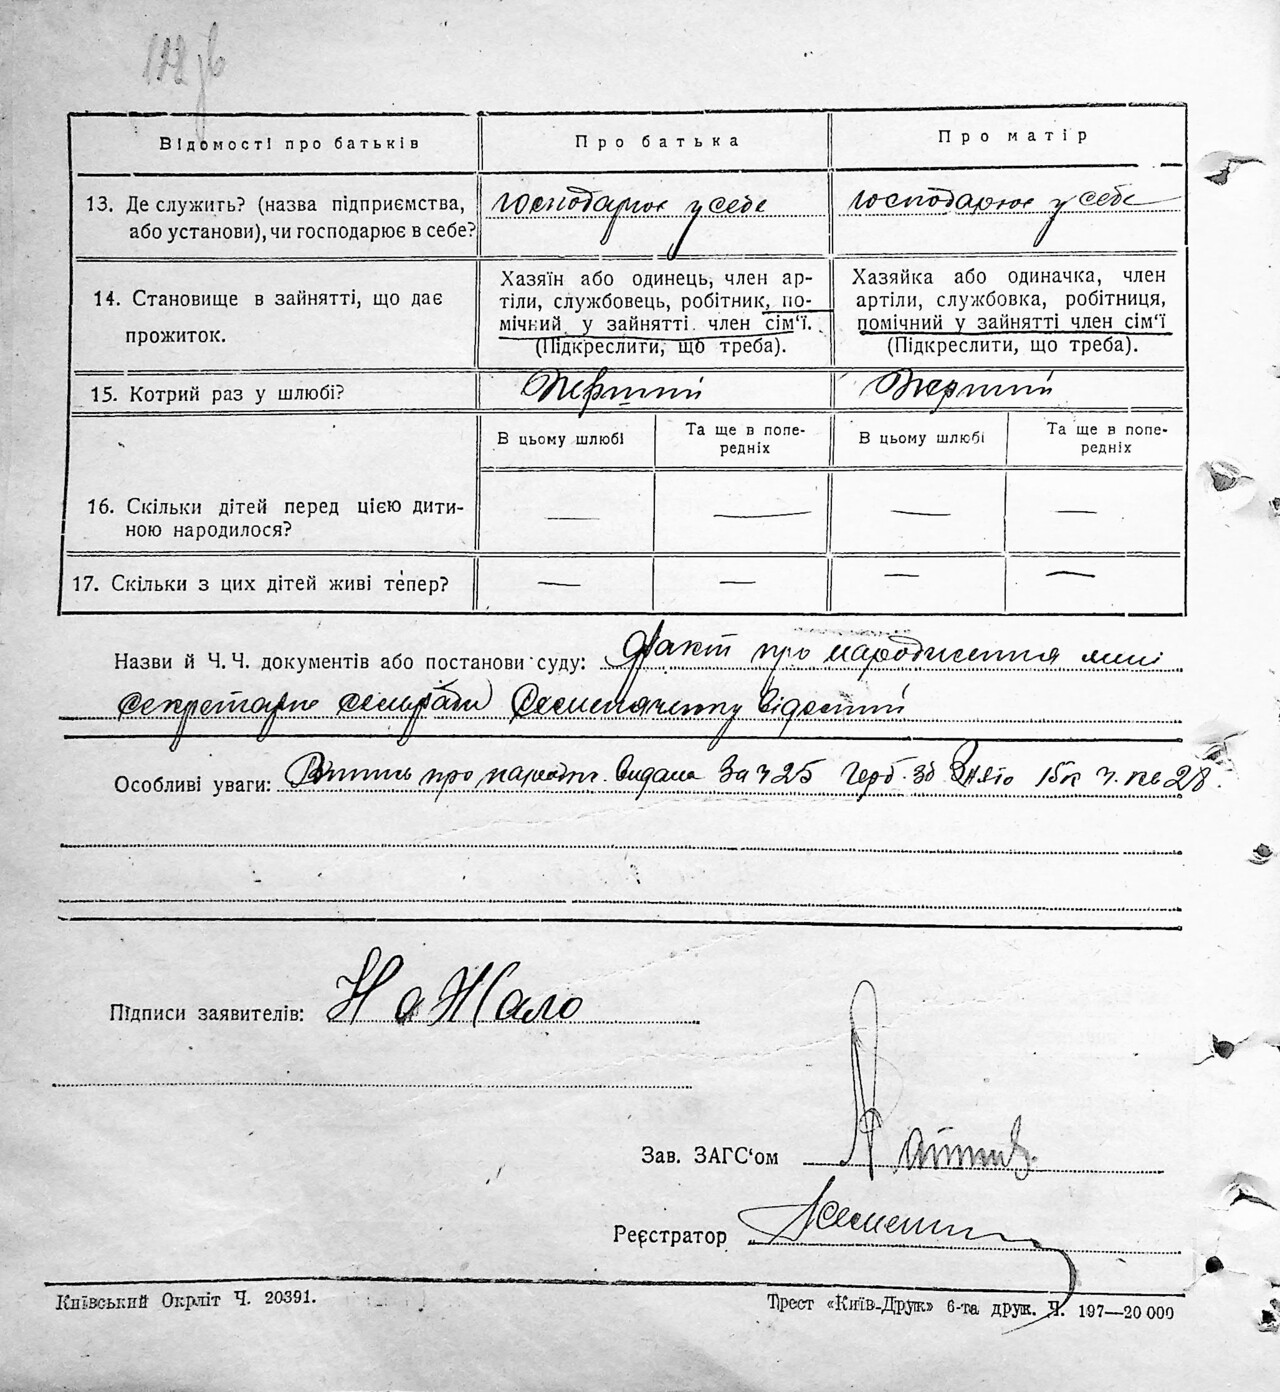 112 зв
Відомості про батьків
Про батька
Про матір
13. Де служить? (назва підприємства, або установи), чи господарює в себе?
господарює у себе
господарює у себе
14. Становище в зайнятті, що дає прожиток.
Хазяїн або одинець, член ар-
тіли, службовець, робітник, по-
мічний у зайнятті член сім'ї.
(Підкреслити, що треба).
Хазяйка або одиначка, член
артіли, службовка, робітниця,
помічний у зайнятті член сім'ї
(Підкреслити, що треба).
15. Котрий раз у шлюбі?
Перший
Перший
В цьому шлюбі
Та ще в попе-
редніх
В цьому шлюбі
Та ще в попе-
редніх
16. Скільки дітей перед цією дити-
ною народилося?
— — — —
17. Скільки з цих дітей живі тепер?
— — — —
Назви й Ч. Ч. документів або постанови суду: Факт про народження мені
секретарю сельради Семенченку відомий
Особливі уваги: про народж. видана За ч 25 Герб. зб Знято 15к
Підписи заявителів: Н а Жало
Зав. ЗАГС'ом
Реєстратор
Київський Окрліт Ч. 20391.
Трест «Київ-Друк» 6-та друк. Ч. 197—20 000